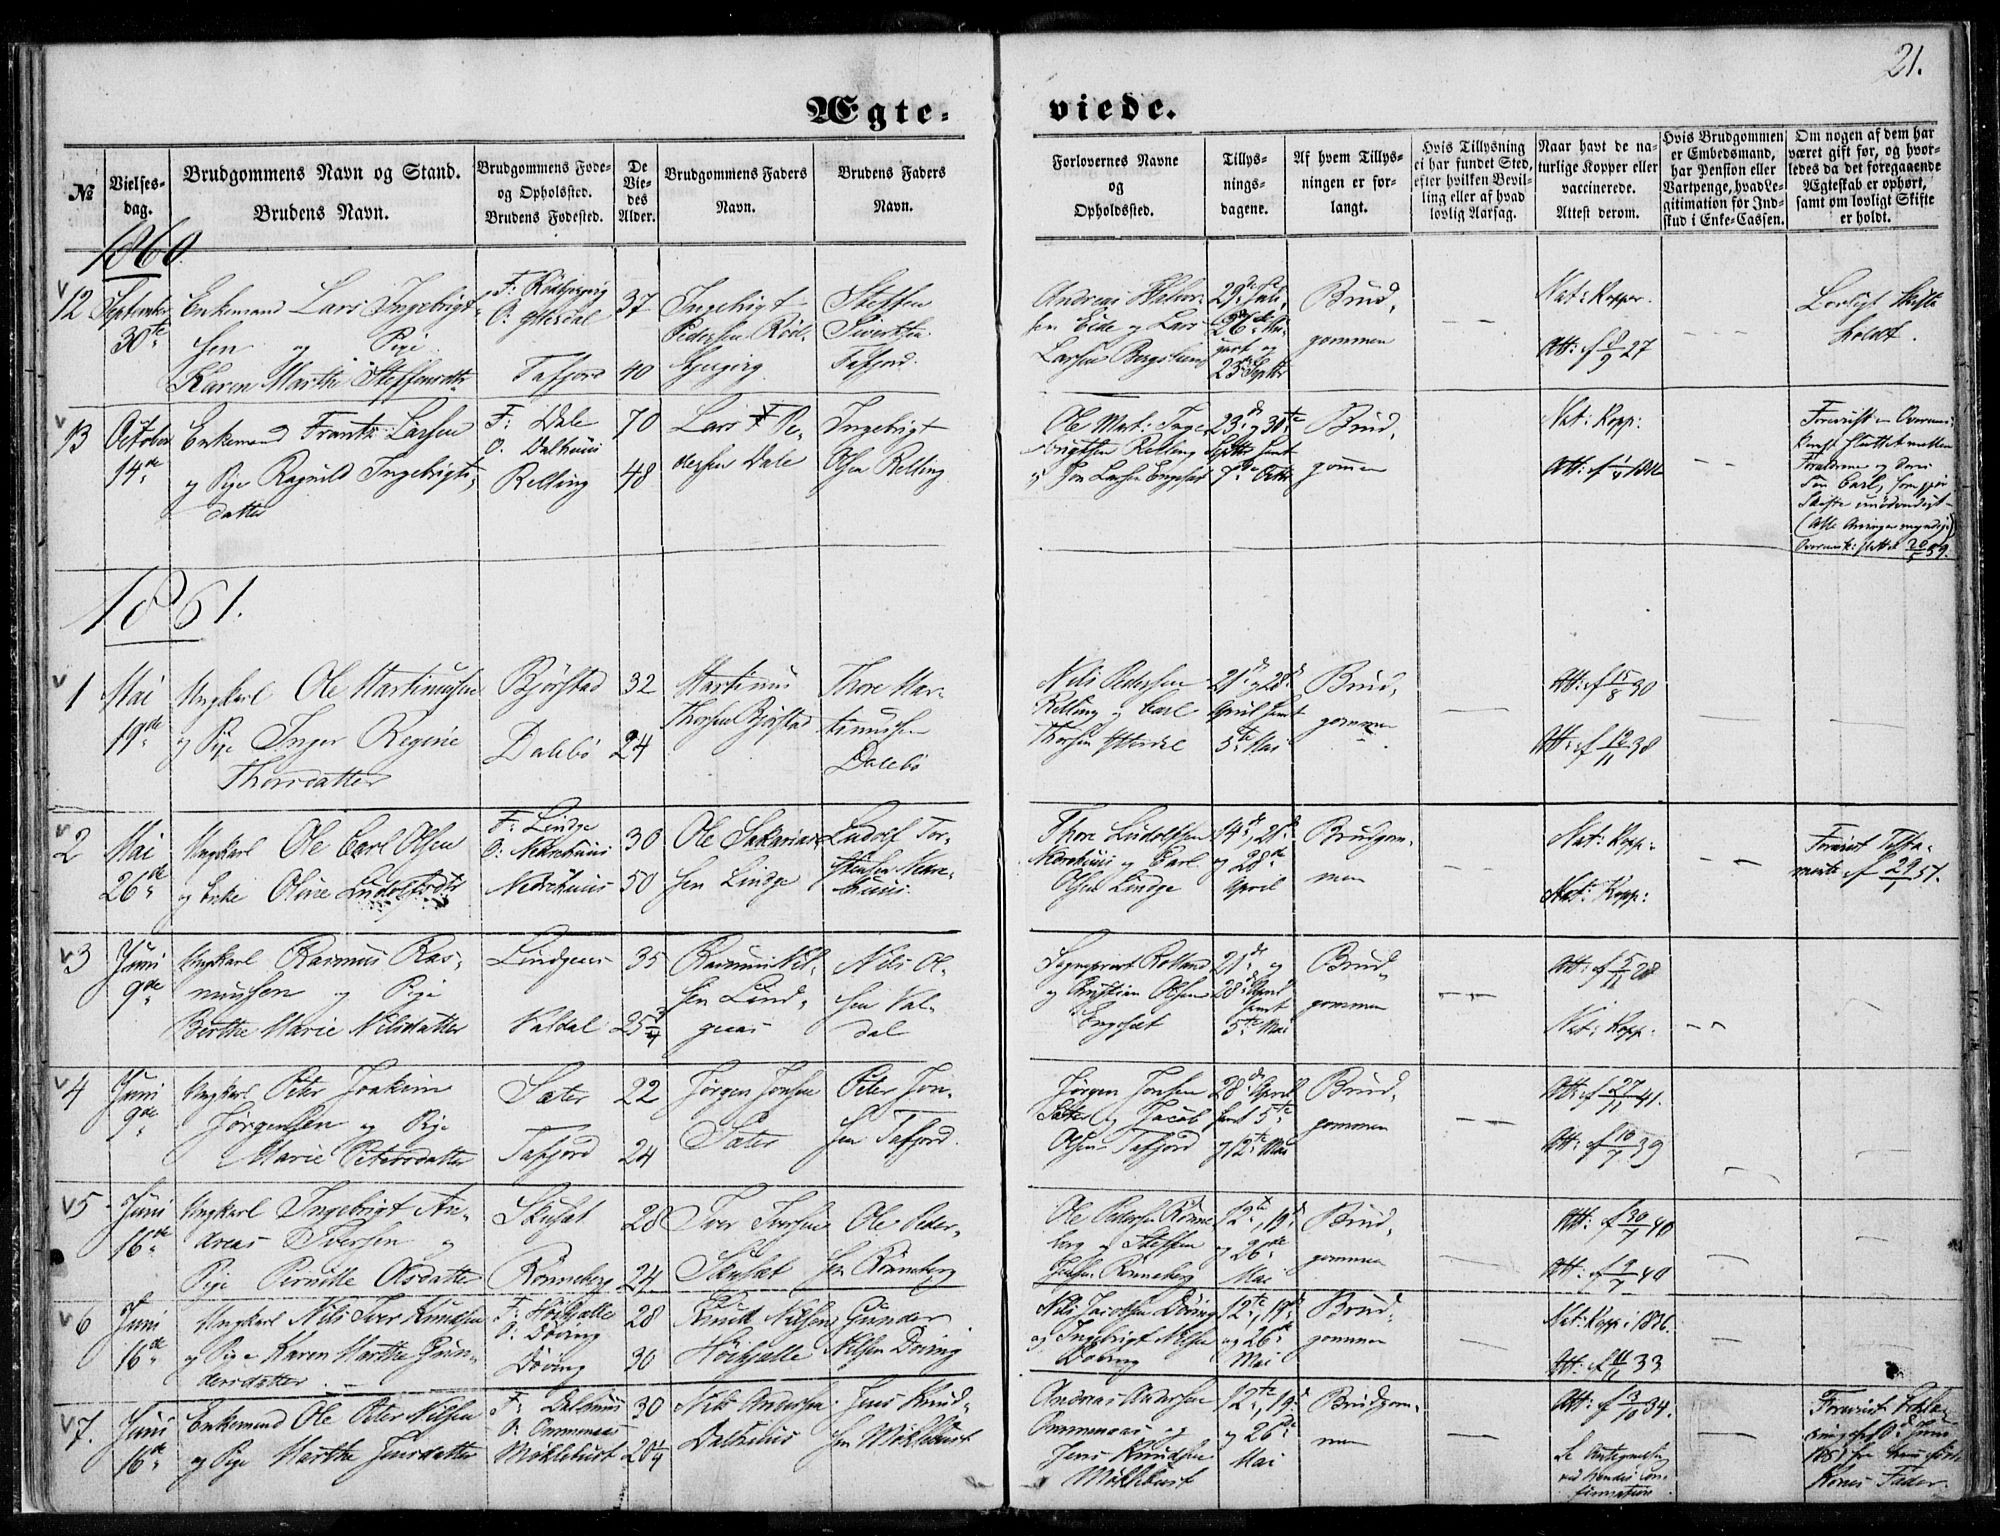 21.
Ægte-viede.
№
Vielses-
dag.
Brudgommens Navn og Stand.
Brudens Navn.
Brudgommens Føde-
og Opholssted.
Brudens Fødested.
De
Vie-
des
Alder.
Brudgommens Faders
Navn.
Brudens Faders
Navn.
Forlovernes Navne
og
Opholdssted.
Tillys-
nings-
dagene.
Af hvem Tillys-
ningen er for-
langt.
Hvis Tillysning
ei har fundet Sted,
efter hvilken Bevil-
ling eller af hvad
lovlig Aarsag.
Naar havt de na-
turlige Kopper eller
vaccinerede.
Attest derom.
Hvis Brudgommen
er Embedsmand,
har Pension eller
Vartpenge, hvad Le-
gitimation for Ind-
skud i Enke-Cassen.
Om nogen af dem har
været gift før, og hvor-
ledes da det foregaaende
Ægteskab er ophørt,
samt om lovligt Skifte
er holdt.
1860
12
September
30te
Enkemand Lars Ingebrigt-
sen og Pige
Karen Marthe Steffensdtr
O: Yttersdal
Tafjord
37
40
Ingebrigt
Pedersen Rød-
Steffen
Sivertsen
Tafjord
Andreas
sen Eide og Lars
Larsen
29de Juli,
26de Au-
gust og
23de Septbr
Brud-
gommen
Nat: Kopper.
Att: af 9/9 27
Lovligt Skifte
holdt.
13
October
14de
Enkemand Frantz Larsen
og Pige Ragnild Ingebrigts-
datter
F: Dale
O: Dalhuus
Relling
70
48
Lars Pe-
dersen Dale
Ingebrigt
Olsen Relling
Ole Mart: Inge-
brigtsen Relling
og Jon Larsen Engeset
23de og 30te
Septbr samt
7de Octbr
Brud-
gommen
Nat: Kopp:
Forældrene og deres
Søn Carl, som gjør
Skifte unødvendigt
1861.
1
Mai
19de
Ungkarl Ole Martinussen
og Pige Inger Regine
Thorsdatter
Bjørstad
Dalebø
32
24
Martinus
Thorsen Bjørstad
Thore Mar-
tinussen
Dalebø
Nils Pedersen
Relling og Carl
Thorsen
21de og 28de
April samt
5te Mai
Brud-
gommen
Att: af 15/8 30
Att: af 12/11 38
2
Mai
26de
Ungkarl Ole Carl Olsen
og Enke Oline Ludolfsdtr
F: Linge
O: Nedrehuus
Nedrehuus
30
50
Ole Sakarias-
sen Lindge
Ludolf Tor-
stensen Nedre-
huus
Thore Ludolfsen
Nedrehuus og Carl
Olsen Lindge
14de, 21de
og 28de
April
Brudgom-
men
Nat: Kopp:
Nat: Kopp:
Forevist Testa-
mente af 29/1 57.
3
Juni
9de
Ungkarl Rasmus Ras-
mussen og Pige
Berthe Marie Nilsdatter
Lindgeaas
Valdal
35
25 3/4
Rasmus Nil-
sen Lind-
geaas
Nils Ol-
sen Val-
dal
og Christian Olsen
Engeset
21de og
28de April
samt
5te Mai
Brud-
gommen
Att: af 5/11 28
Nat: Kopp:
4
Juni
9de
Ungkarl Peter Joakim
Jørgensen og Pige
Marie Petersdatter
Sæter
Tafjord
22
24
Jørgen Jonsen
Sæter
Peter Jon-
sen Tafjord.
Jørgen Jonsen
Sæter og Jacob
Olsen Tafjord
28de April
samt 5te
og 12te Mai
Brud-
gommen
Att: af 27/11 41.
Att: af 10/7 39
5
Juni
16de
Ungkarl Ingebrigt An-
dreas Iversen og
Pige Pernille Olsdatter
Skuset
Rønneberg
28
24
Iver Iversen
Skuset
Ole Peder-
sen Rønneberg
Ole Pedersen Rønne-
berg og Steffen
Jensen Rønneberg
12te, 19de
og 26de
Mai
Brud-
gommen
Att: af 30/7 40
Att: af 9/7 40
6
Juni
16de
Ungkarl Nils Iver Knudsen
og Pige Karen Marthe Gun-
dersdatter.
F: Høihjelle
O: Døving
Døving
28
30
Knud Nilsen
Høihjelle
Gunder
Nilsen Døving
Nils Jacobsen Døving
og Ingebrigt Nilsen
Døving
12te, 19de
og 26de
Mai
Brud-
gommen
Nat: Kopp: 1836.
Att: af 11/11 33
7.
Juni
16de
Enkemand Ole Peter Nilsen
og Pige Marthe Jensdatter
F: Dalhuus
O: Ommenaas
Møklebust
30
20 1/4
Nils Andersen
Dalhuus
Jens Knud-
sen Møklebust
Andreas Andersen
Ommenaas og
Jens Knudsen
Møklebust
12te, 19de
og 26de
Mai
Brudgom-
men
Att: af 3/10 34.
Se Antegnelse
ved hendes Con-
firmation
Konens Fader.